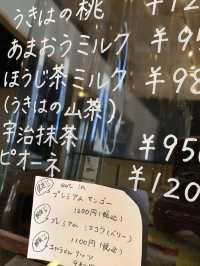 うきはの桃 ¥12
あまおうミルク ¥95
ほうじ茶ミルク ¥98
(うきはの山茶)
宇治抹茶 ¥950
ピオーネ ¥120
プレミアム マンゴー
1200円(税込)
プレミアム ショコラ(ベリー)
1100円(税込)
キャラメルナッツ